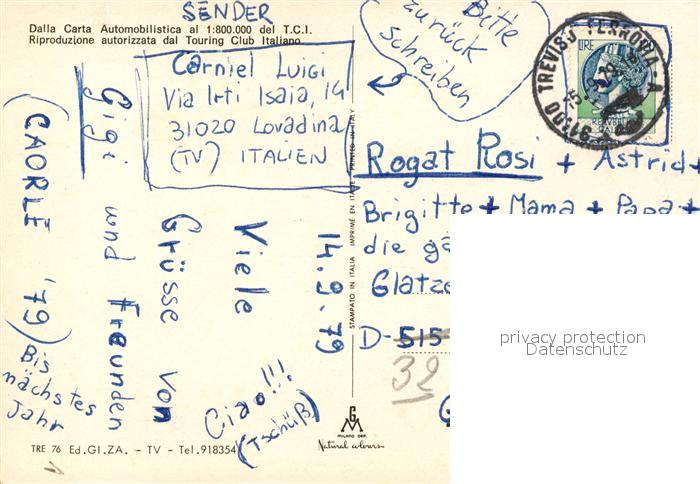 SENDER
Dalla Carta Automobilistica al 1:800.000 del T.C.I.
Riproduzione autorizzata dal Touring Club Italiano
Carniel Luigi
Via Irti Isaia, 14
31020 Lovadina
(TV) ITALIEN
Bitte
zurück
schreiben
31100 TREVISO FERROVIA - A
LIRE
Rogat Rosi + Astrid +
Brigitte + Mama + Papa +
die
Glatze
D-515
32
14.9.79
Viele
Grüsse von
Gigi und Freunden
(CAORLE '79)
Bis
nächstes
Jahr
Ciao!!!
(Tschüß)
STAMPATO IN ITALIA IMPRIMÉ EN ITALIE PRINTED IN ITALY
GM
MILANO DEP.
Natural colours
TRE 76 Ed.GI.ZA. - TV - Tel.918354
privacy protection
Datenschutz